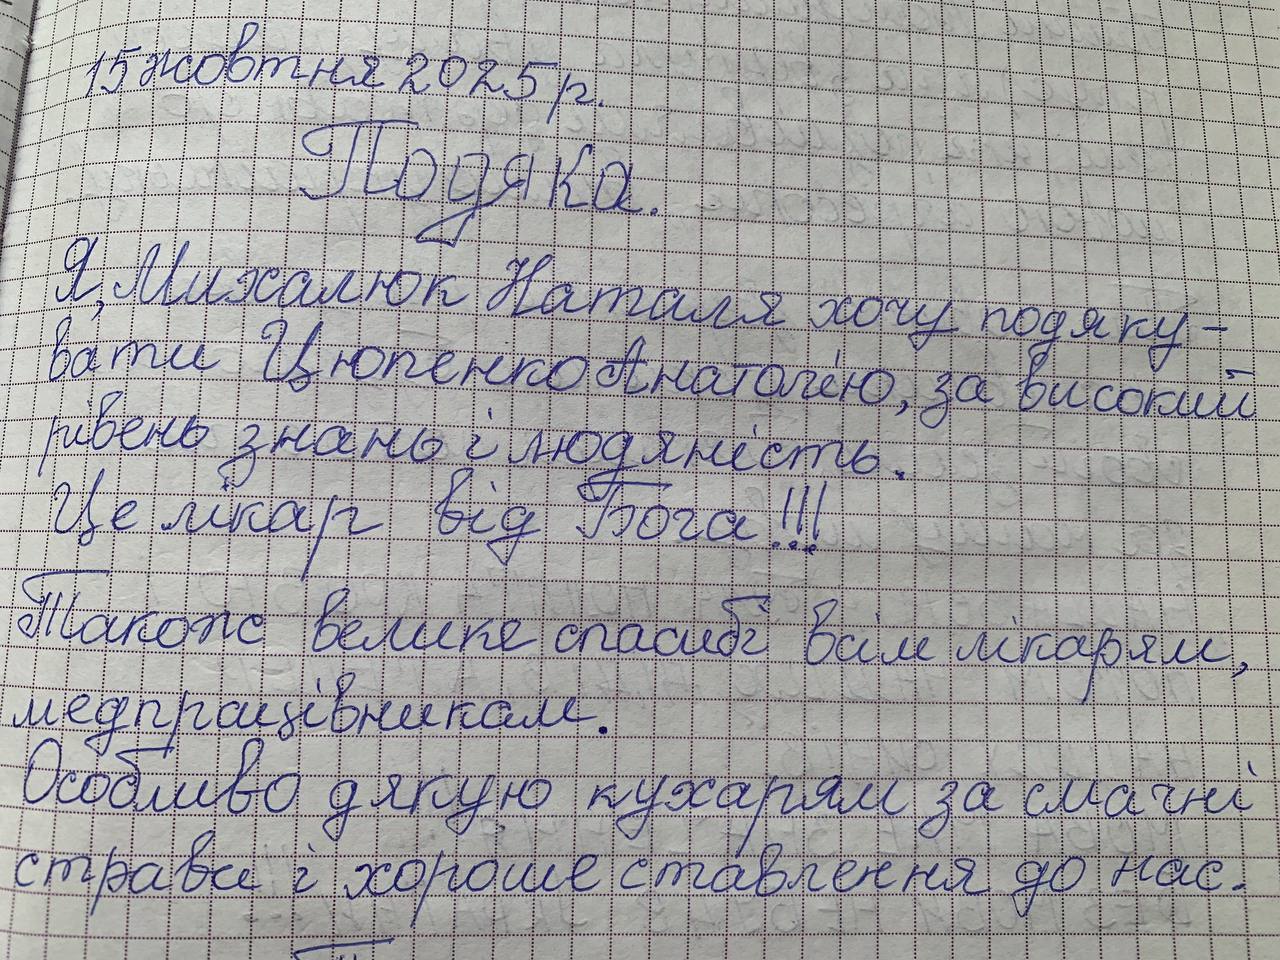 15 жовтня 2025 р.
Подяка.
Я, Михалюк Наталя хочу подяку-
вати Цюпенко Анатолію, за високий
рівень знань і людяність.
Це лікар від Бога!!!
Також велике спасибі всім лікарям,
медпрацівникам.
Особливо дякую кухарям за смачні
страви і хороше ставлення до нас.